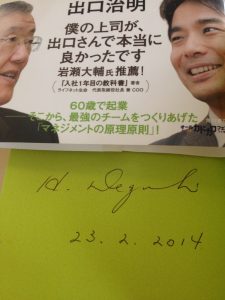 出口治明
僕の上司が、
出口さんで本当に
良かったです
岩瀬大輔氏推薦!
『入社1年目の教科書』著者
ライフネット生命 代表取締役社長兼COO
60歳で起業
そこから、最強のチームをつくりあげた
「マネジメントの原理原則」!
H. Deguchi
23. 2. 2014